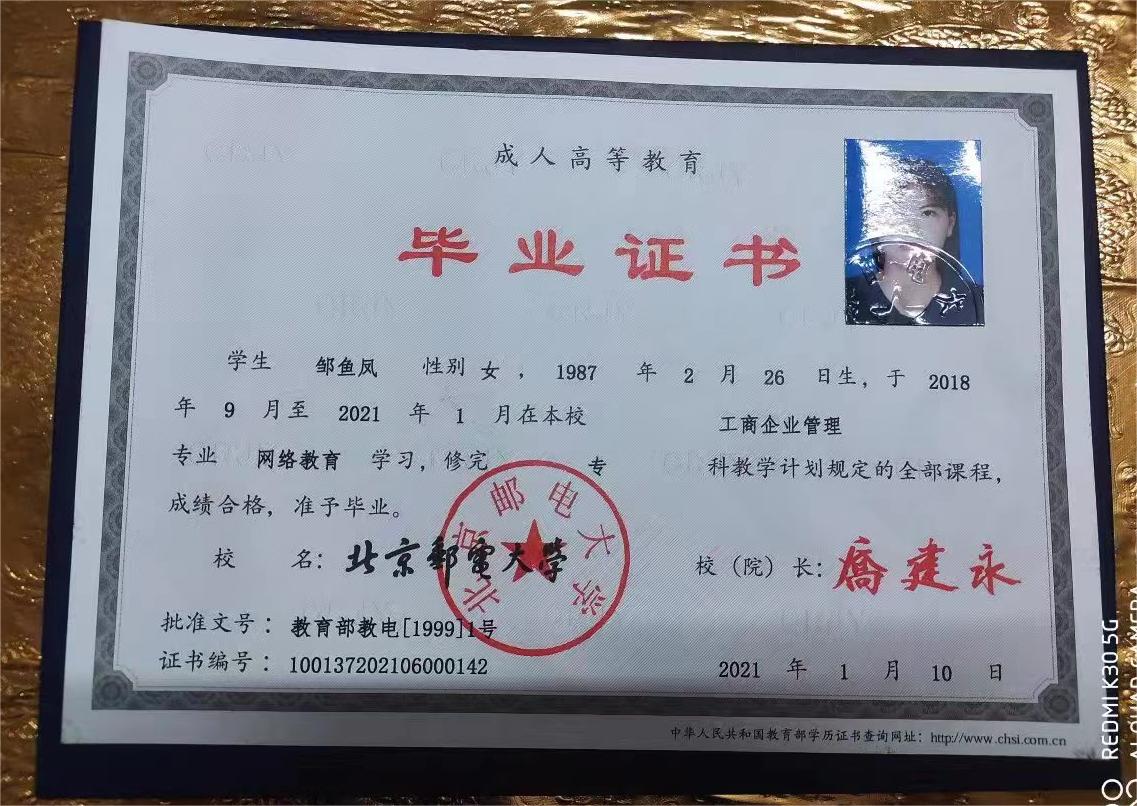 成人高等教育
毕业证书
学生 邹鱼凤 性别 女， 1987 年 2 月 26 日生，于 2018
年 9 月至 2021 年 1 月在本校 工商企业管理
专业 网络教育 学习，修完 专 科教学计划规定的全部课程，
成绩合格，准予毕业。
北京邮电大学
校 名：北京郵電大學 校（院）长：乔建永
批准文号：教育部教电[1999]1号
证书编号：100137202106000142 2021 年 1 月 10 日
中华人民共和国教育部学历证书查询网址：http://www.chsi.com.cn
REDMI K30 5G